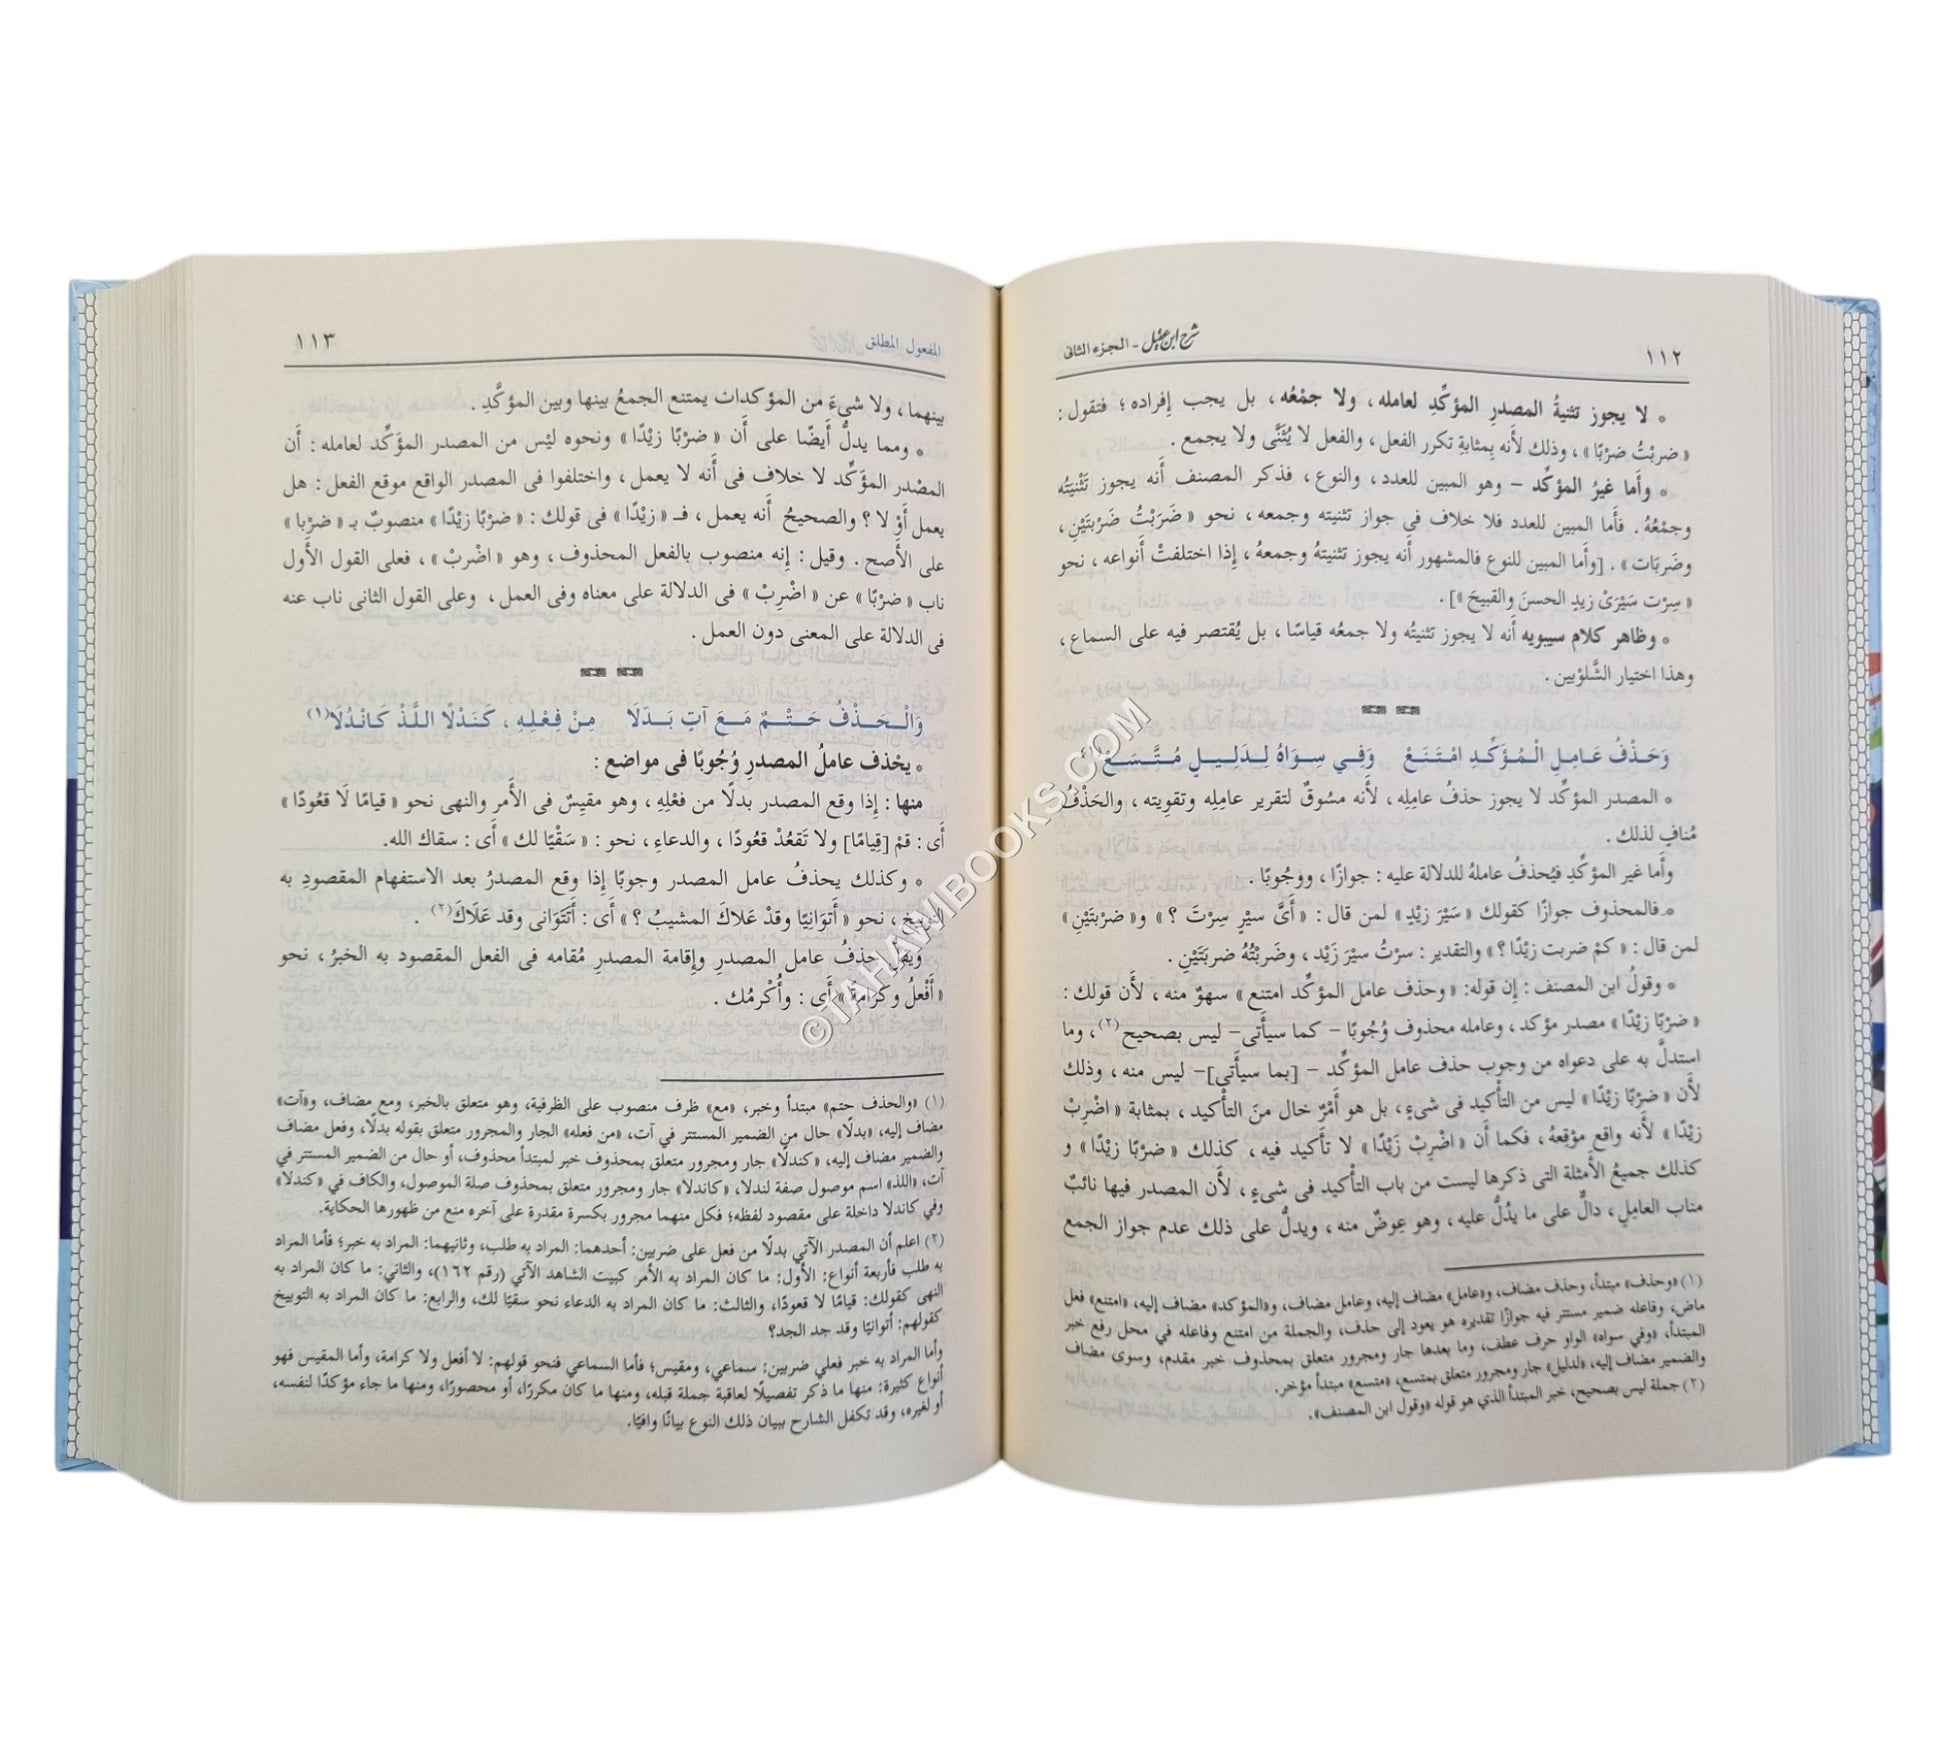 ١١٢
شرح ابن عقيل - الجزء الثانى
* لا يجوز تثنيةُ المصدرِ المؤكِّدِ لعامله، ولا جمْعُه، بل يجب إفراده؛ فتقول:
« ضربْتُ ضرْبًا »، وذلك لأنه بِمثابةِ تكرر الفعل، والفعل لا يُثَنَّى ولا يجمع.
* وأما غيرُ المؤكِّد – وهو المبين للعدد، والنوع، فذكر المصنف أنه يجوز تَثْنِيتُه
وجمْعُهُ. فأما المبين للعدد فلا خلاف فى جواز تثنيته وجمعه، نحو « ضَرَبْتُ ضَرْبتَيْنِ،
وضَرَبَات ». [وأما المبين للنوع فالمشهور أنه يجوز تثنيتهُ وجمعهُ، إذا اختلفتْ أنواعه، نحو
« سِرْت سَيْرَىْ زيدٍ الحسنَ والقبيحَ »].
* وظاهر كلام سيبويه أنه لا يجوز تثنيتُه ولا جمعُه قياسًا، بل يُقتصر فيه على السماع،
وهذا اختيار الشَّلَوْبين.
وَحَذْفُ عَـامِـلِ الْـمُـؤَكِّـدِ امْـتَـنَـعْ وَفِـي سِـوَاهُ لِـدَلِـيـلٍ مُـتَّـسَـعْ
* المصدر المؤكِّد لا يجوز حذفُ عامِلِه، لأنه مسُوقٌ لتقرير عامِلِه وتقوِيته، والحَذْفُ
مُنافٍ لذلك.
وأما غير المؤكِّدِ فيُحذفُ عاملهُ للدلالة عليه: جوازًا، ووجُوبًا.
* فالمحذوف جوازًا كقولك « سَيْرَ زيْدٍ » لمن قال: « أىَّ سيْرٍ سِرْتَ؟ » و« ضربْتَيْنِ »
لمن قال: « كمْ ضربت زيْدًا؟ » والتقدير: سرْتُ سيْرَ زَيْد، وضَربْتُهُ ضربَتَيْنِ.
* وقولُ ابن المصنف: إن قوله: « وحذف عامل المؤكِّد امتنع » سهوٌ منه، لأن قولك:
« ضرْبًا زيْدًا » مصدر مؤكد، وعامله محذوف وُجُوبًا – كما سيأتى– ليس بصحيح(٢)، وما
استدلَّ به على دعواه من وجوب حذف عامل المؤكِّد – [بما سيأتى]– ليس منه، وذلك
لأن « ضرْبًا زيْدًا » ليس من التأْكيد فى شىءٍ، بل هو أَمْرٌ خال منَ التأكيد، بمثابة « اضْرِبْ
زيْدًا » لأنه واقع موْقِعهُ، فكما أن « اضْرِبْ زَيْدًا » لا تأكيد فيه، كذلك « ضرْبًا زيْدًا » و
كذلك جميعُ الأمثلة التى ذكرها ليست من باب التأْكيد فى شىءٍ، لأن المصدر فيها نائبٌ
مناب العامِلِ، دالٌّ على ما يدُلُّ عليه، وهو عِوضٌ منه، ويدلُّ على ذلك عدم جواز الجمع
(١) «وحذف» مبتدأ، وحذف مضاف، و«عامل» مضاف إليه، وعامل مضاف، و«المؤكد» مضاف إليه، «امتنع» فعل
ماض، وفاعله ضمير مستتر فيه جوازًا تقديره هو يعود إلى حذف، والجملة من امتنع وفاعله في محل رفع خبر
المبتدأ، «وفي سواه» الواو حرف عطف، وما بعدها جار ومجرور متعلق بمحذوف خبر مقدم، وسوى مضاف
والضمير مضاف إليه، «لدليل» جار ومجرور متعلق بمتسع، «متسع» مبتدأ مؤخر.
(٢) جملة ليس بصحيح، خبر المبتدأ الذي هو قوله «وقول ابن المصنف».
المفعول المطلق
١١٣
بينهما، ولا شىءَ من المؤكدات يمتنع الجمعُ بينها وبين المؤكَّدِ.
* ومما يدلُّ أيضًا على أن « ضرْبًا زيْدًا » ونحوه ليْس من المصدر المؤكِّد لعامله: أَن
المصْدر المؤكِّد لا خلاف فى أنه لا يعمل، واختلفوا فى المصدر الواقع موقع الفعل: هل
يعمل أَوْ لا؟ والصحيحُ أنه يعمل، فـ « زيْدًا » فى قولك: « ضرْبًا زيْدًا » منصوبٌ بـ « ضرْبا »
على الأصح. وقيل: إنه منصوب بالفعل المحذوف، وهو « اضْربْ »، فعلى القول الأول
ناب « ضرْبًا » عن « اضْرِبْ » فى الدلالة على معناه وفى العمل، وعلى القول الثانى ناب عنه
فى الدلالة على المعنى دون العمل.
وَالْـحَـذْفُ حَـتْـمٌ مَـعَ آتٍ بَـدَلَا مِـنْ فِـعْـلِـهِ، كَـنَـدْلًا الـلَّـذْ كَـانْـدُلَا(١)
* يحْذف عاملُ المصدرِ وُجُوبًا فى مواضع:
منها: إذا وقع المصدر بدلًا من فعْلِهِ، وهو مقيِسٌ فى الأمر والنهى نحو « قيامًا لَا قعُودًا »
أَى: قمْ [قِيامًا] ولا تَقعُدْ قعُودًا، والدعاءِ، نحو: « سَقْيًا لك » أى: سقاك الله.
* وكذلك يحذفُ عامل المصدر وجوبًا إذا وقع المصدرُ بعد الاستفهام المقصودِ به
التوبيخ، نحو « أتوَانِيًا وقدْ عَلاكَ المشيبُ؟ » أى: أَتَتَوَانى وقد عَلَاكَ(٢).
ويَقِلُّ حذفُ عامل المصدرِ وإقامة المصدرِ مُقامه فى الفعل المقصود به الخبرُ، نحو
« أَفْعلُ وكرَامةً » أى: وأُكْرمُك.
(١) «والحذف حتم» مبتدأ وخبر، «مع» ظرف منصوب على الظرفية، وهو متعلق بالخبر، ومع مضاف، و«آت»
مضاف إليه، «بدلًا» حال من الضمير المستتر في آت، «من فعله» الجار والمجرور متعلق بقوله بدلًا، وفعل مضاف
والضمير مضاف إليه، «كندلًا» جار ومجرور متعلق بمحذوف خبر لمبتدأ محذوف، أو حال من الضمير المستتر في
آت، «اللذ» اسم موصول صفة لندلا، «كاندلا» جار ومجرور متعلق بمحذوف صلة الموصول، والكاف في «كندلا»
وفي كاندلا داخلة على مقصود لفظه؛ فكل منهما مجرور بكسرة مقدرة على آخره منع من ظهورها الحكاية.
(٢) اعلم أن المصدر الآتي بدلًا من فعل على ضربين: أحدهما: المراد به طلب، وثانيهما: المراد به خبر؛ فأما المراد
به طلب فأربعة أنواع: الأول: ما كان المراد به الأمر كبيت الشاهد الآتي (رقم ١٦٢)، والثاني: ما كان المراد به
النهى كقولك: قيامًا لا قعودًا، والثالث: ما كان المراد به الدعاء نحو سقيًا لك، والرابع: ما كان المراد به التوبيخ
كقولهم: أتوانيًا وقد جد الجد؟
وأما المراد به خبر فعلي ضربين: سماعي، ومقيس؛ فأما السماعي فنحو قولهم: لا أفعل ولا كرامة، وأما المقيس فهو
أنواع كثيرة: منها ما ذكر تفصيلًا لعاقبة جملة قبله، ومنها ما كان مكررًا، أو محصورًا، ومنها ما جاء مؤكدًا لنفسه،
أو لغيره، وقد تكفل الشارح ببيان ذلك النوع بيانًا وافيًا.
©TAHAWIBOOKS.COM